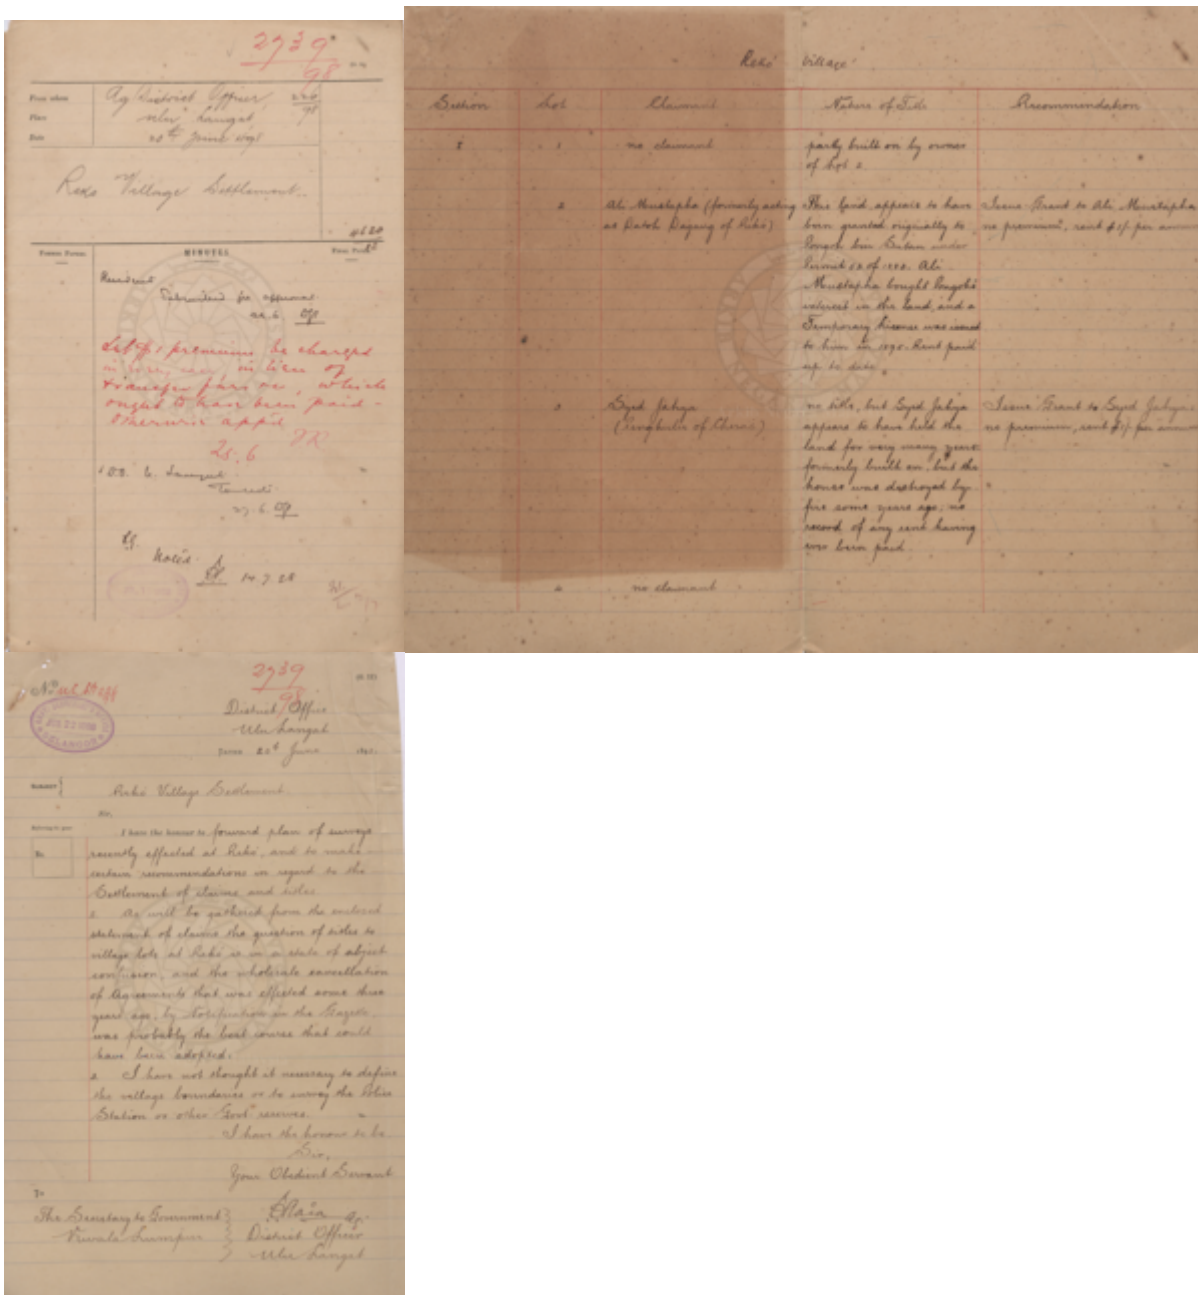 2739
98
From whom
Ag District Officer
Place
Ulu Langat
Date
20th June 1898
Reko Village Settlement
MINUTES
Resident
Submitted for approval
Let $1 premium be charged
in lieu of
transfer fees, which
ought to have been paid -
otherwise app'd
25.6
D.O. U. Langat
27.6
Noted
14.7.98
Reko Village
Section
Lot
Claimant
Nature of Title
Recommendation
I
1
no claimant
partly built on by owner
of Lot 2
2
Ali Mustapha (formerly acting
as Datoh Dagang of Reko)
This land appears to have
been granted originally to
Longoh bin Sutan under
Permit of 1888. Ali
Mustapha bought Longoh's
interest in the land, and a
Temporary license was issued
to him in 1895. Rent paid
up to date.
Issue Grant to Ali Mustapha
no premium, rent $1/- per annum
3
Syed Jahya
(Penghulu of Cheras)
no title, but Syed Jahya
appears to have held the
land for very many years
formerly built on, but the
house was destroyed by
fire some years ago; no
record of any rent having
ever been paid.
Issue Grant to Syed Jahya
no premium, rent $1/- per annum
4
no claimant
2739
98
No.
District Office
Ulu Langat
20th June
SUBJECT
Reko Village Settlement.
Sir,
I have the honour to forward plan of surveys
recently effected at Reko, and to make
certain recommendations in regard to the
Settlement of claims and titles.
2 As will be gathered from the enclosed
statement of claims the question of titles to
village lots at Reko is in a state of abject
confusion, and the wholesale cancellation
of Agreements that was effected some three
years ago, by Notification in the Gazette,
was probably the best course that could
have been adopted.
3 I have not thought it necessary to define
the village boundaries or to survey the Police
Station or other Govt reserves.
I have the honour to be
Sir,
Your Obedient Servant
To
The Secretary to Government
Kuala Lumpur
Ag.
District Officer
Ulu Langat